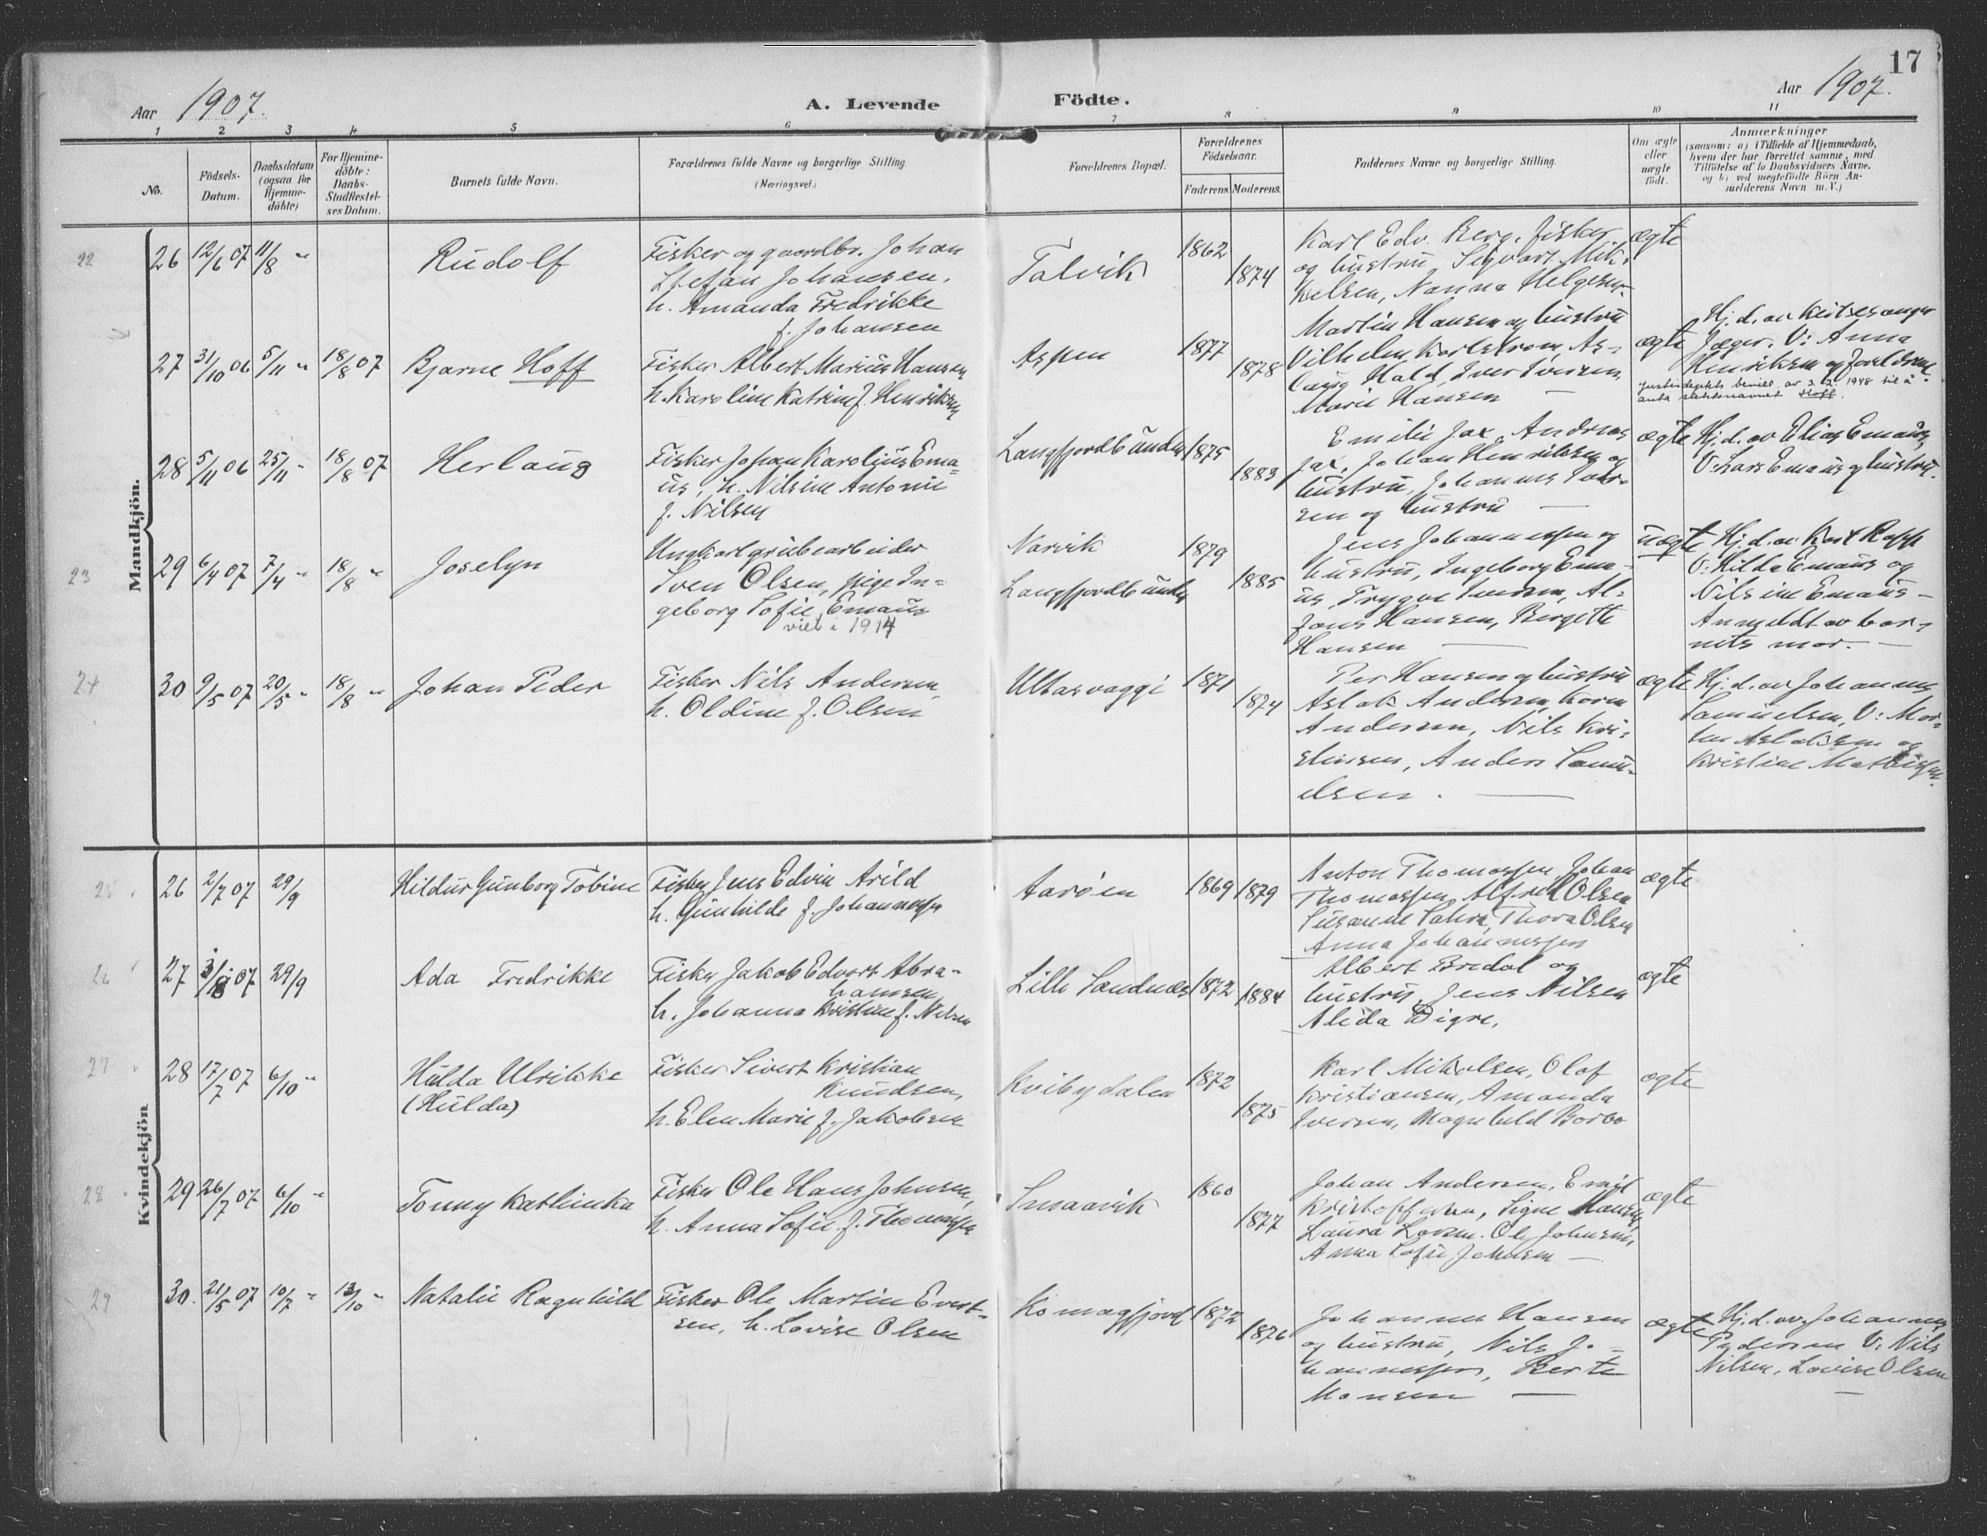 17
Aar 1907.
A. Levende Födte.
Aar 1907.
1 2 3 4 5 6 7 8 9 10 11
No.
Födsels-
Datum.
Daabsdatum
(ogsaa for
Hjemme-
döbte)
For Hjemme-
döbte:
Daabs-
Stadfæstel-
ses Datum.
Barnets fulde Navn.
Forældrenes fulde Navne og borgerlige Stilling.
(Næringsvei.)
Forældrenes Bopæl.
Forældrenes
Födselsaar.
Faderens. Moderens.
Faddernes Navne og borgerlige Stilling.
Om ægte
eller
uægte
født.
Anmærkninger
(saasom: a) i Tilfælde af Hjemmedaab,
hvem der har forrettet samme, med
Tilföielse af to Daabsvidners Navne,
og b) ved uægtefödte Börn An-
melderens Navn m. V.)
Mandkjön.
22
26 12/6 07 11/8 "
Rudolf
Fisker og gaardbr. Johan
Stefan Johansen,
h. Amanda Fredrikke
f. Johansen
Talvik
1862
1874
Karl Edv. Berg, fisker
og hustru, Sigvart Mik-
kelsen, Nanna Helgesen
ægte
27 31/10 06 5/11 " 18/8 07
Bjarne Hoff
Fisker Albert Marius Hansen
h. Karoline Katrine f. Henriksen
Aspen
1877
1878
Martin Hansen og hustru
Vilhelm Karlstrøm, As-
laug Hald, Iver Iversen,
Marie Hansen
ægte
Hj. d. av kirkesanger
Jæger. V: Anna
Henriksen og forældrene
Justisdepts bevill. av 3. 2. 1948 til å
anta slektsnavnet Hoff.
28 5/11 06 25/11 " 18/8 07
Herlaug
Fisker Johan Karolius Ema-
us, h. Nilsine Antonie
f. Nilsen
Langfjordbunden
1875
1883
Emilie Jax, Andreas
Jax, Johan Henriksen og
hustru, Johannes Iver-
sen og hustru
ægte
Hj. d. av Elias Emaus,
V: Lars Emaus og hustru.
23
29 6/4 07 7/4 " 18/8 "
Joselyn
Ungkarl grubearbeider
Sven Olsen, pige In-
geborg Sofie Emaus
viet i 1914
Narvik
Langfjordbunden
1879
1885
Jens Johannessen og
hustru, Ingeborg Ema-
us, Trygve Iversen, Al-
fons Hansen, Bergitte
Hansen
uægte
Hj. d. av Karl Rapp
V: Hilda Emaus og
Nilsine Emaus -
Anmeldt av bar-
nets mor.
24
30 9/5 07 20/5 " 18/8 "
Johan Peder
Fisker Nils Andersen,
h. Oldine f. Olsen
Ulvasvaggi
1871
1874
Per Hansen og hustru
Aslak Andersen, Karen
Andersen, Nils Kri-
stensen, Anders Samu-
elsen.
ægte
Hj. d. av Johannes
Samuelsen, V: Mor-
ten Aslaksen og
Kristine Mathisen.
Kvindekjön
25
26 2/7 07 29/9
Hildur Gunborg Tobine
Fisker Jens Edvin Arild
h. Gunhilde f. Johannessen
Aarøen
1869 1879
Anton Thomassen, Johan
Thomassen, Alfred Olsen
Susanne Sahra, Thora Olsen
Anna Johannessen
ægte
26
27 3/8 07 29/9
Ada Fredrikke
Fisker Jakob Edvart Abra-
hamsen
h. Johanna Kristine f. Nilsen
Lille Sandnæs
1872 1884
Albert Bredal og
hustru, Jens Nilsen
Alida Digre.
ægte
27
28 17/7 07 6/10 "
Hulda Ulrikke
(Hulda)
Fisker Sivert Kristian
Knudsen,
h. Elen Marie f. Jakobsen
Kvibydalen
1872
1875
Karl Mikalsen, Olaf
Kristiansen, Amanda
Iversen, Magnhild Barbo
ægte
28
29 26/7 07 6/10 "
Tonny Kathinka
Fisker Ole Hans Johnsen,
h. Anna Sofie f. Thomassen
Smaavik
1860
1877
Johan Andersen, Emil
Kristoffersen, Signe Hansen,
Laura Larsen. Ole Johnsen,
Anna Sofie Johnsen
ægte
29
30. 21/5 07 10/7 " 13/10 "
Natalie Ragnhild
Fisker Ole Martin Evert-
sen, h. Lovise Olsen
Komagfjord
1872
1876
Johannes Hansen
og hustru, Nils Jo-
hannessen, Berte
Monsen
ægte
Hj. d. av Johannes
Pedersen V: Nils
Nilsen, Lovise Olsen